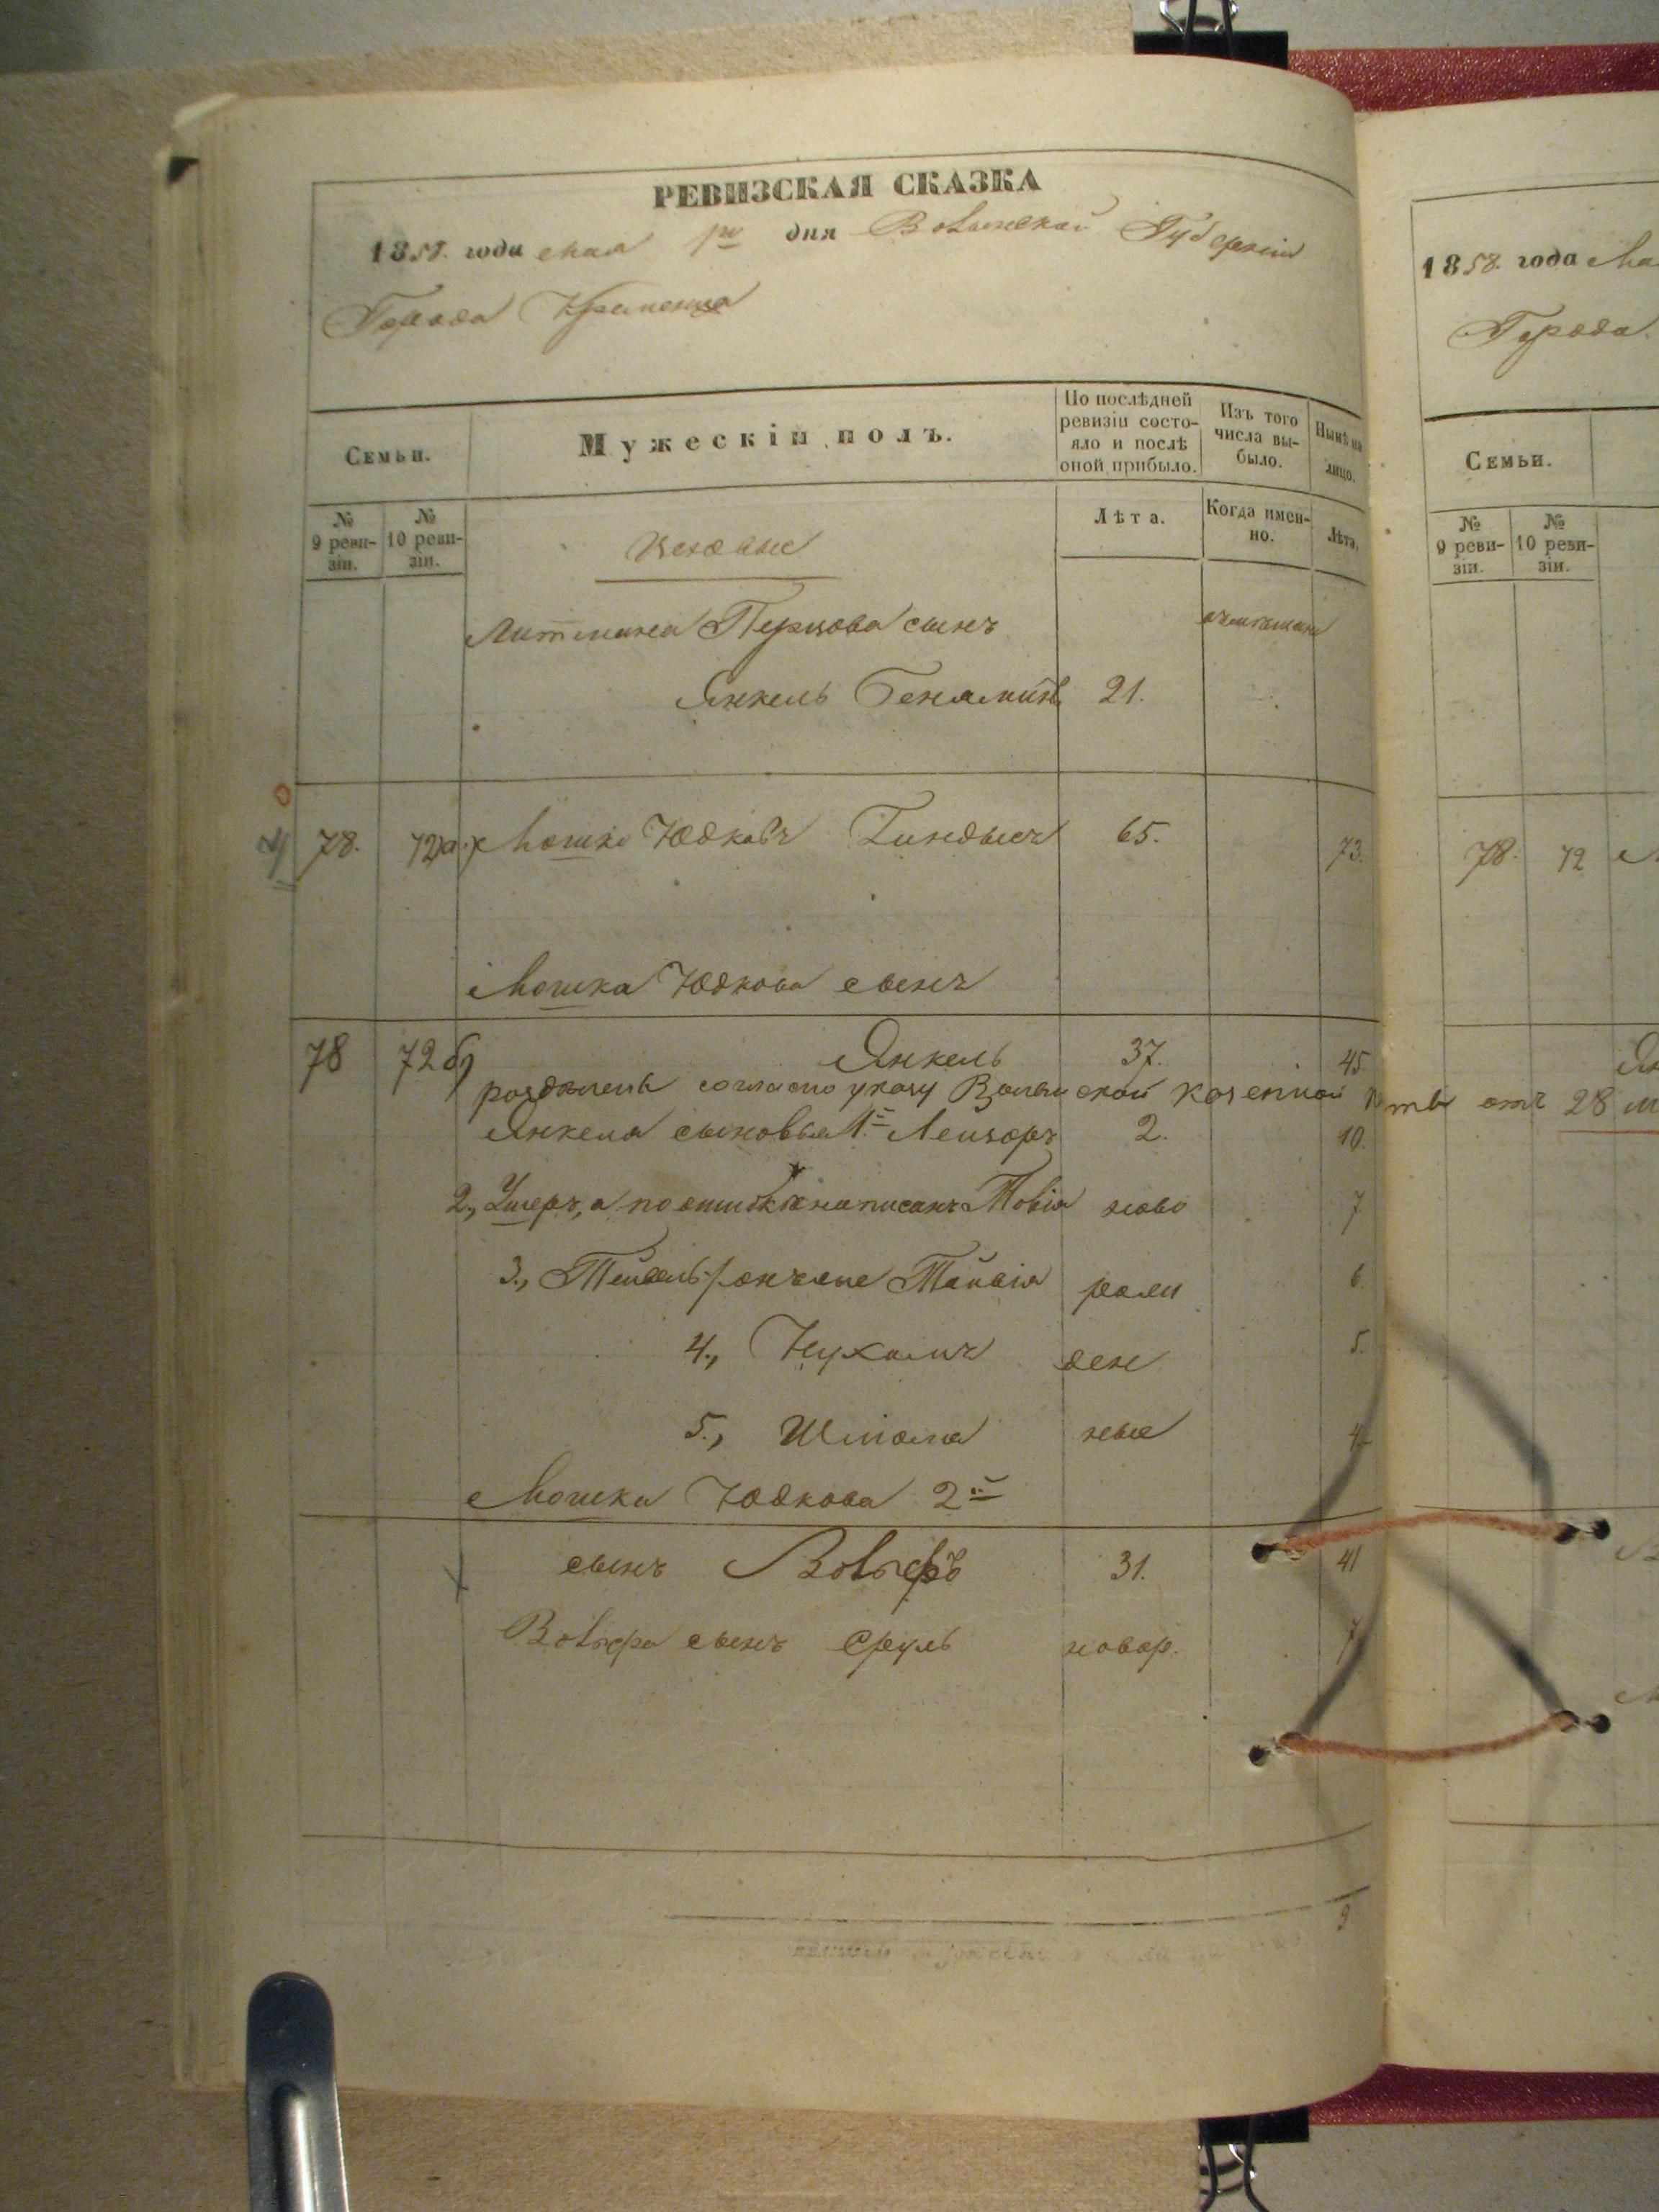 РЕВИЗСКАЯ СКАЗКА
1858. года мая 1го дня Волынской Губерніи
Города Кременца
Семьи.
Мужескій полъ.
По послѣдней ревизіи состояло и послѣ оной прибыло.
Изъ того числа выбыло.
Нынѣ на лицо.
№ 9 ревизіи.
№ 10 ревизіи.
Лѣта.
Когда именно.
Лѣта.
Цеховые
Литмана Перцова сынъ
Янкель Бенямин 21.
78. 72а. Мошко Юдковъ 65. 73.
Мошка Юдкова сынъ
78 72 б) Янкель 37. 45
раздѣлены согласно указу Волынской Казенной отъ 28
Янкеля сыновья 1й Лейзоръ 2. 10.
2., Ушеръ, а по ошибкѣ написанъ Товія ново 7
3., Тейвель онъ же Тайвія рож 6
4., Нухимъ ден 5.
5., Шлiома ные 4
Мошка Юдкова 2й
сынъ Вольфъ 31. 41
Вольфа сынъ Сруль новор. 7
9
1858. года Ма
Города.
Семьи.
№ 9 ревизіи.
№ 10 ревизіи.
78. 72 М
Ян